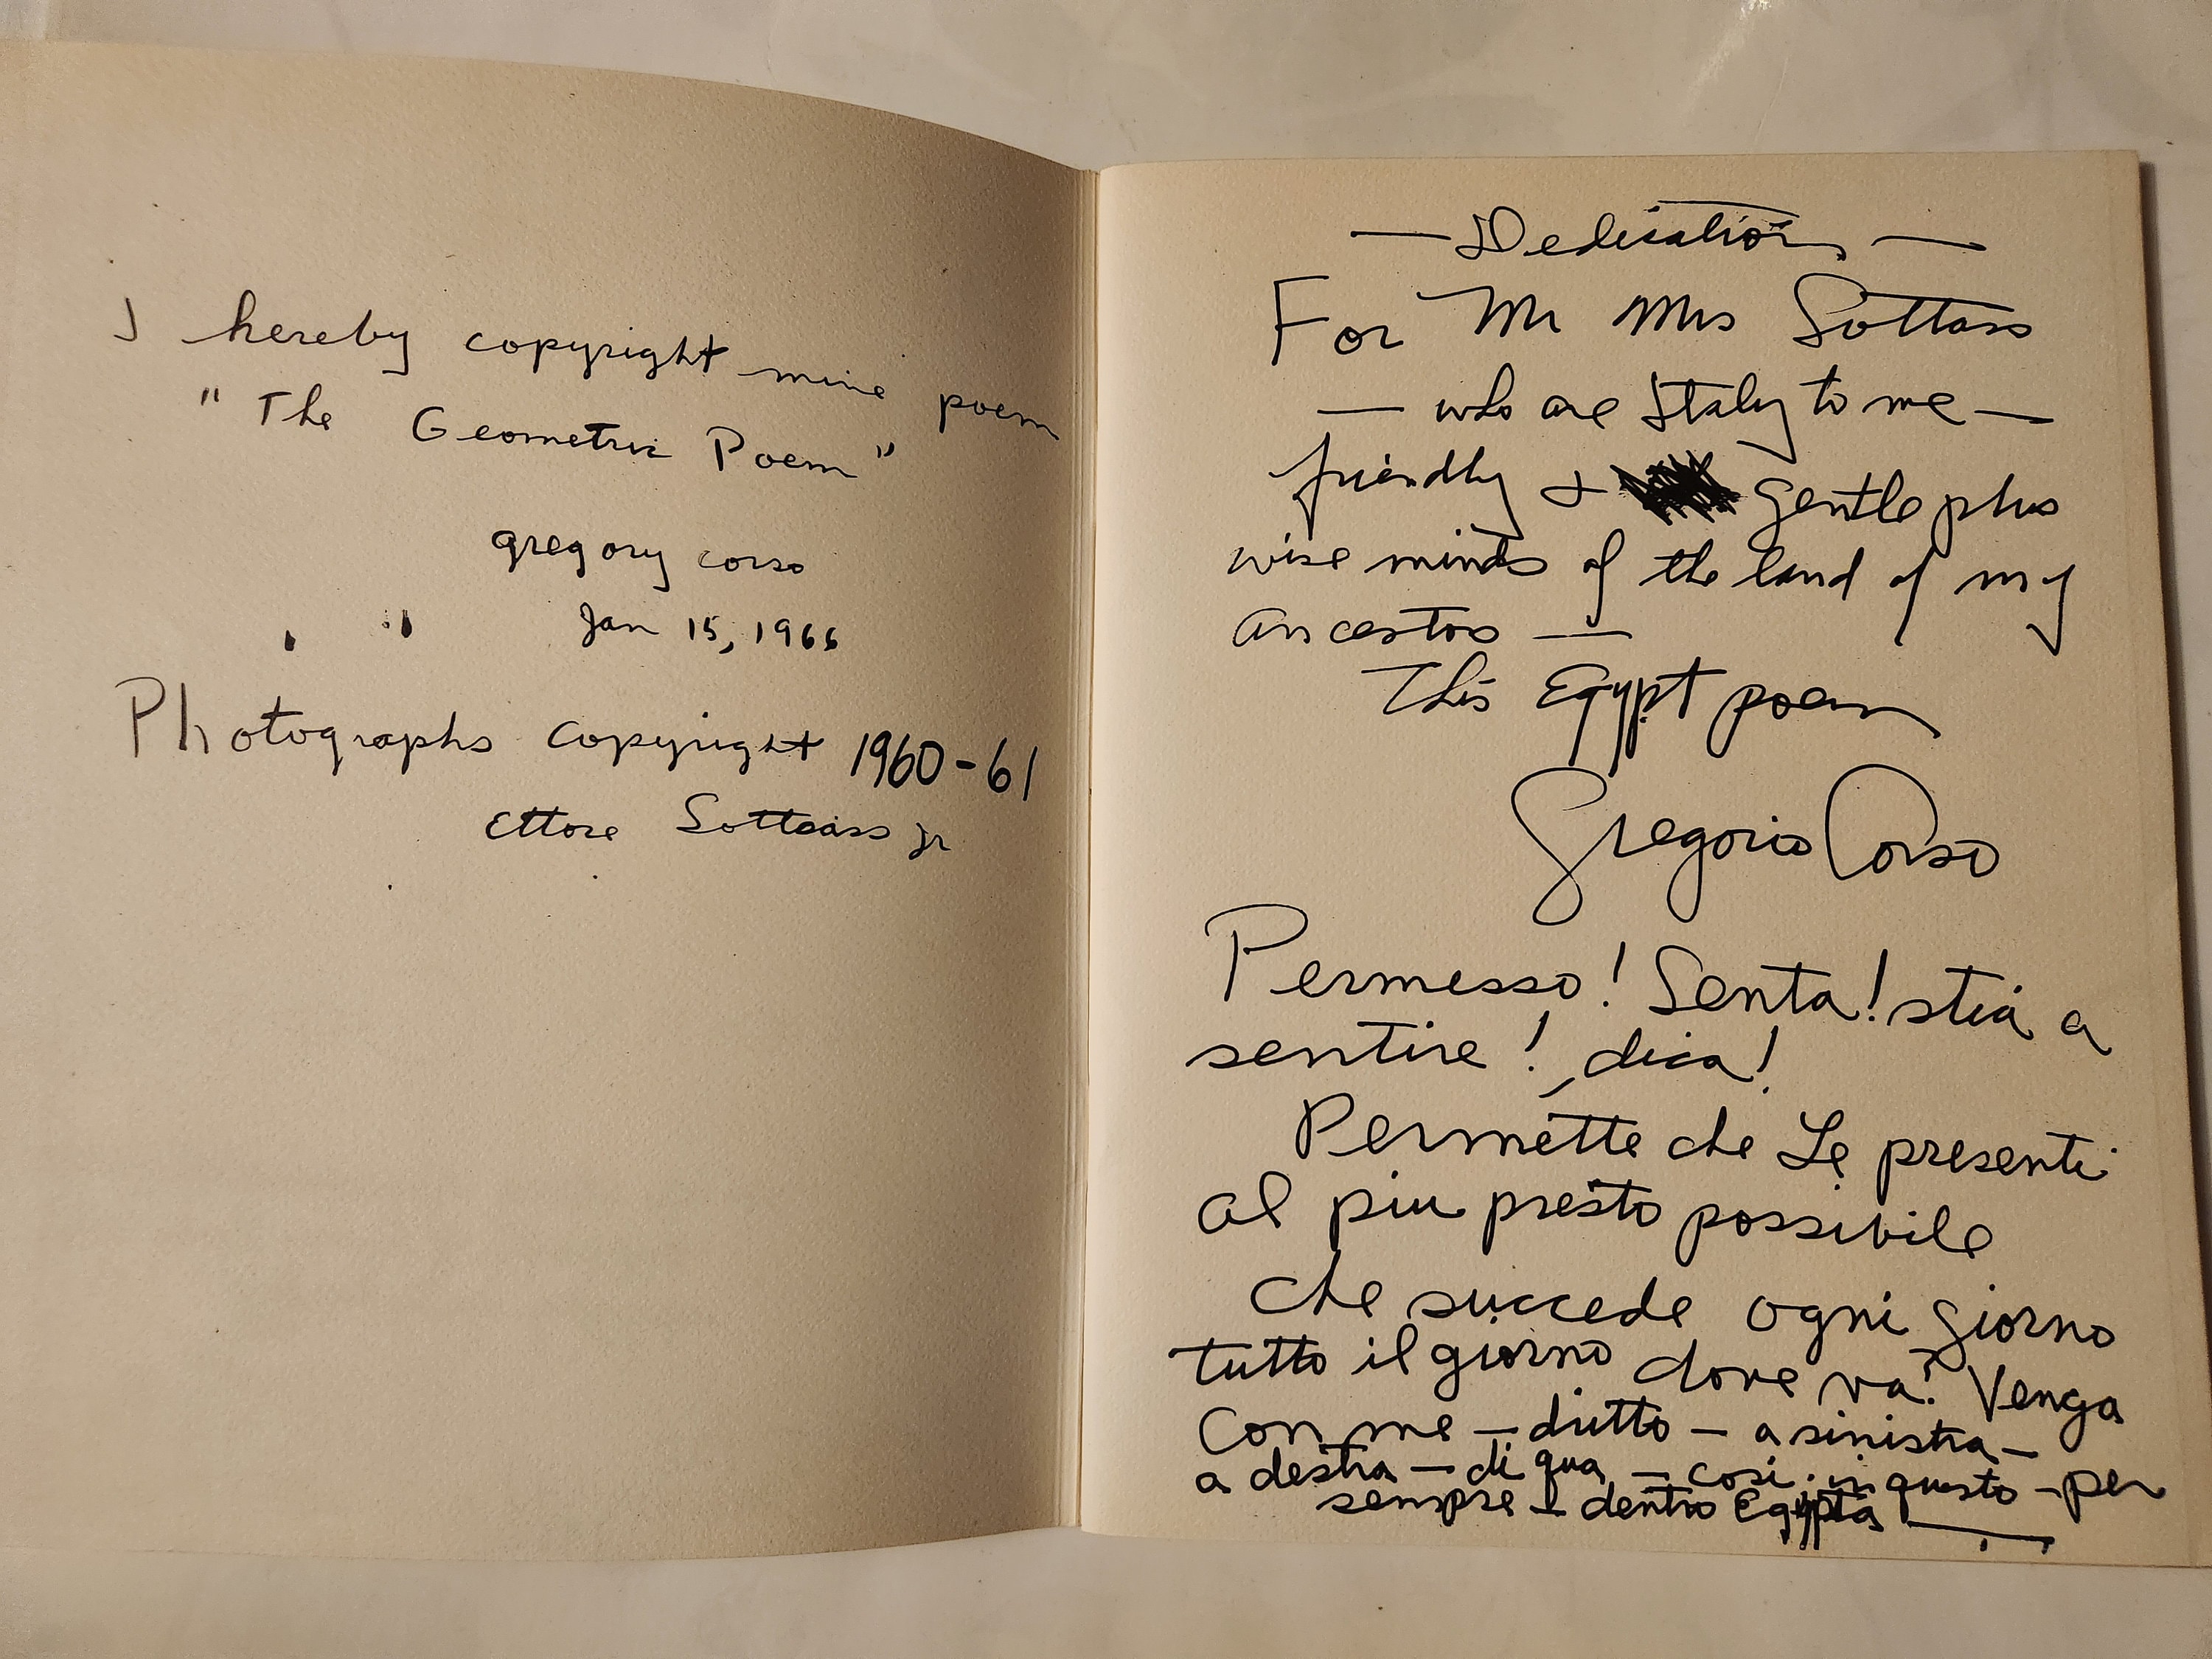 I hereby copyright mine poem
"The Geometric Poem"
gregory corso
Jan 15, 1966
Photographs copyright 1960-61
Ettore Sottsass jr
— Dedication —
For Mr Mrs Sottsass
— who are Italy to me —
friendly + gentle plus
wise minds of the land of my
ancestors —
This Egypt poem
Gregorio Corso
Permesso! Senta! stia a
sentire! dica!
Permette che Le presenti
al piu presto possibile
che succede ogni giorno
tutto il giorno dove va? Venga
con me — diritto — a sinistra —
a destra — di qua — cosi: in questo — per
sempre — dentro Egypta —